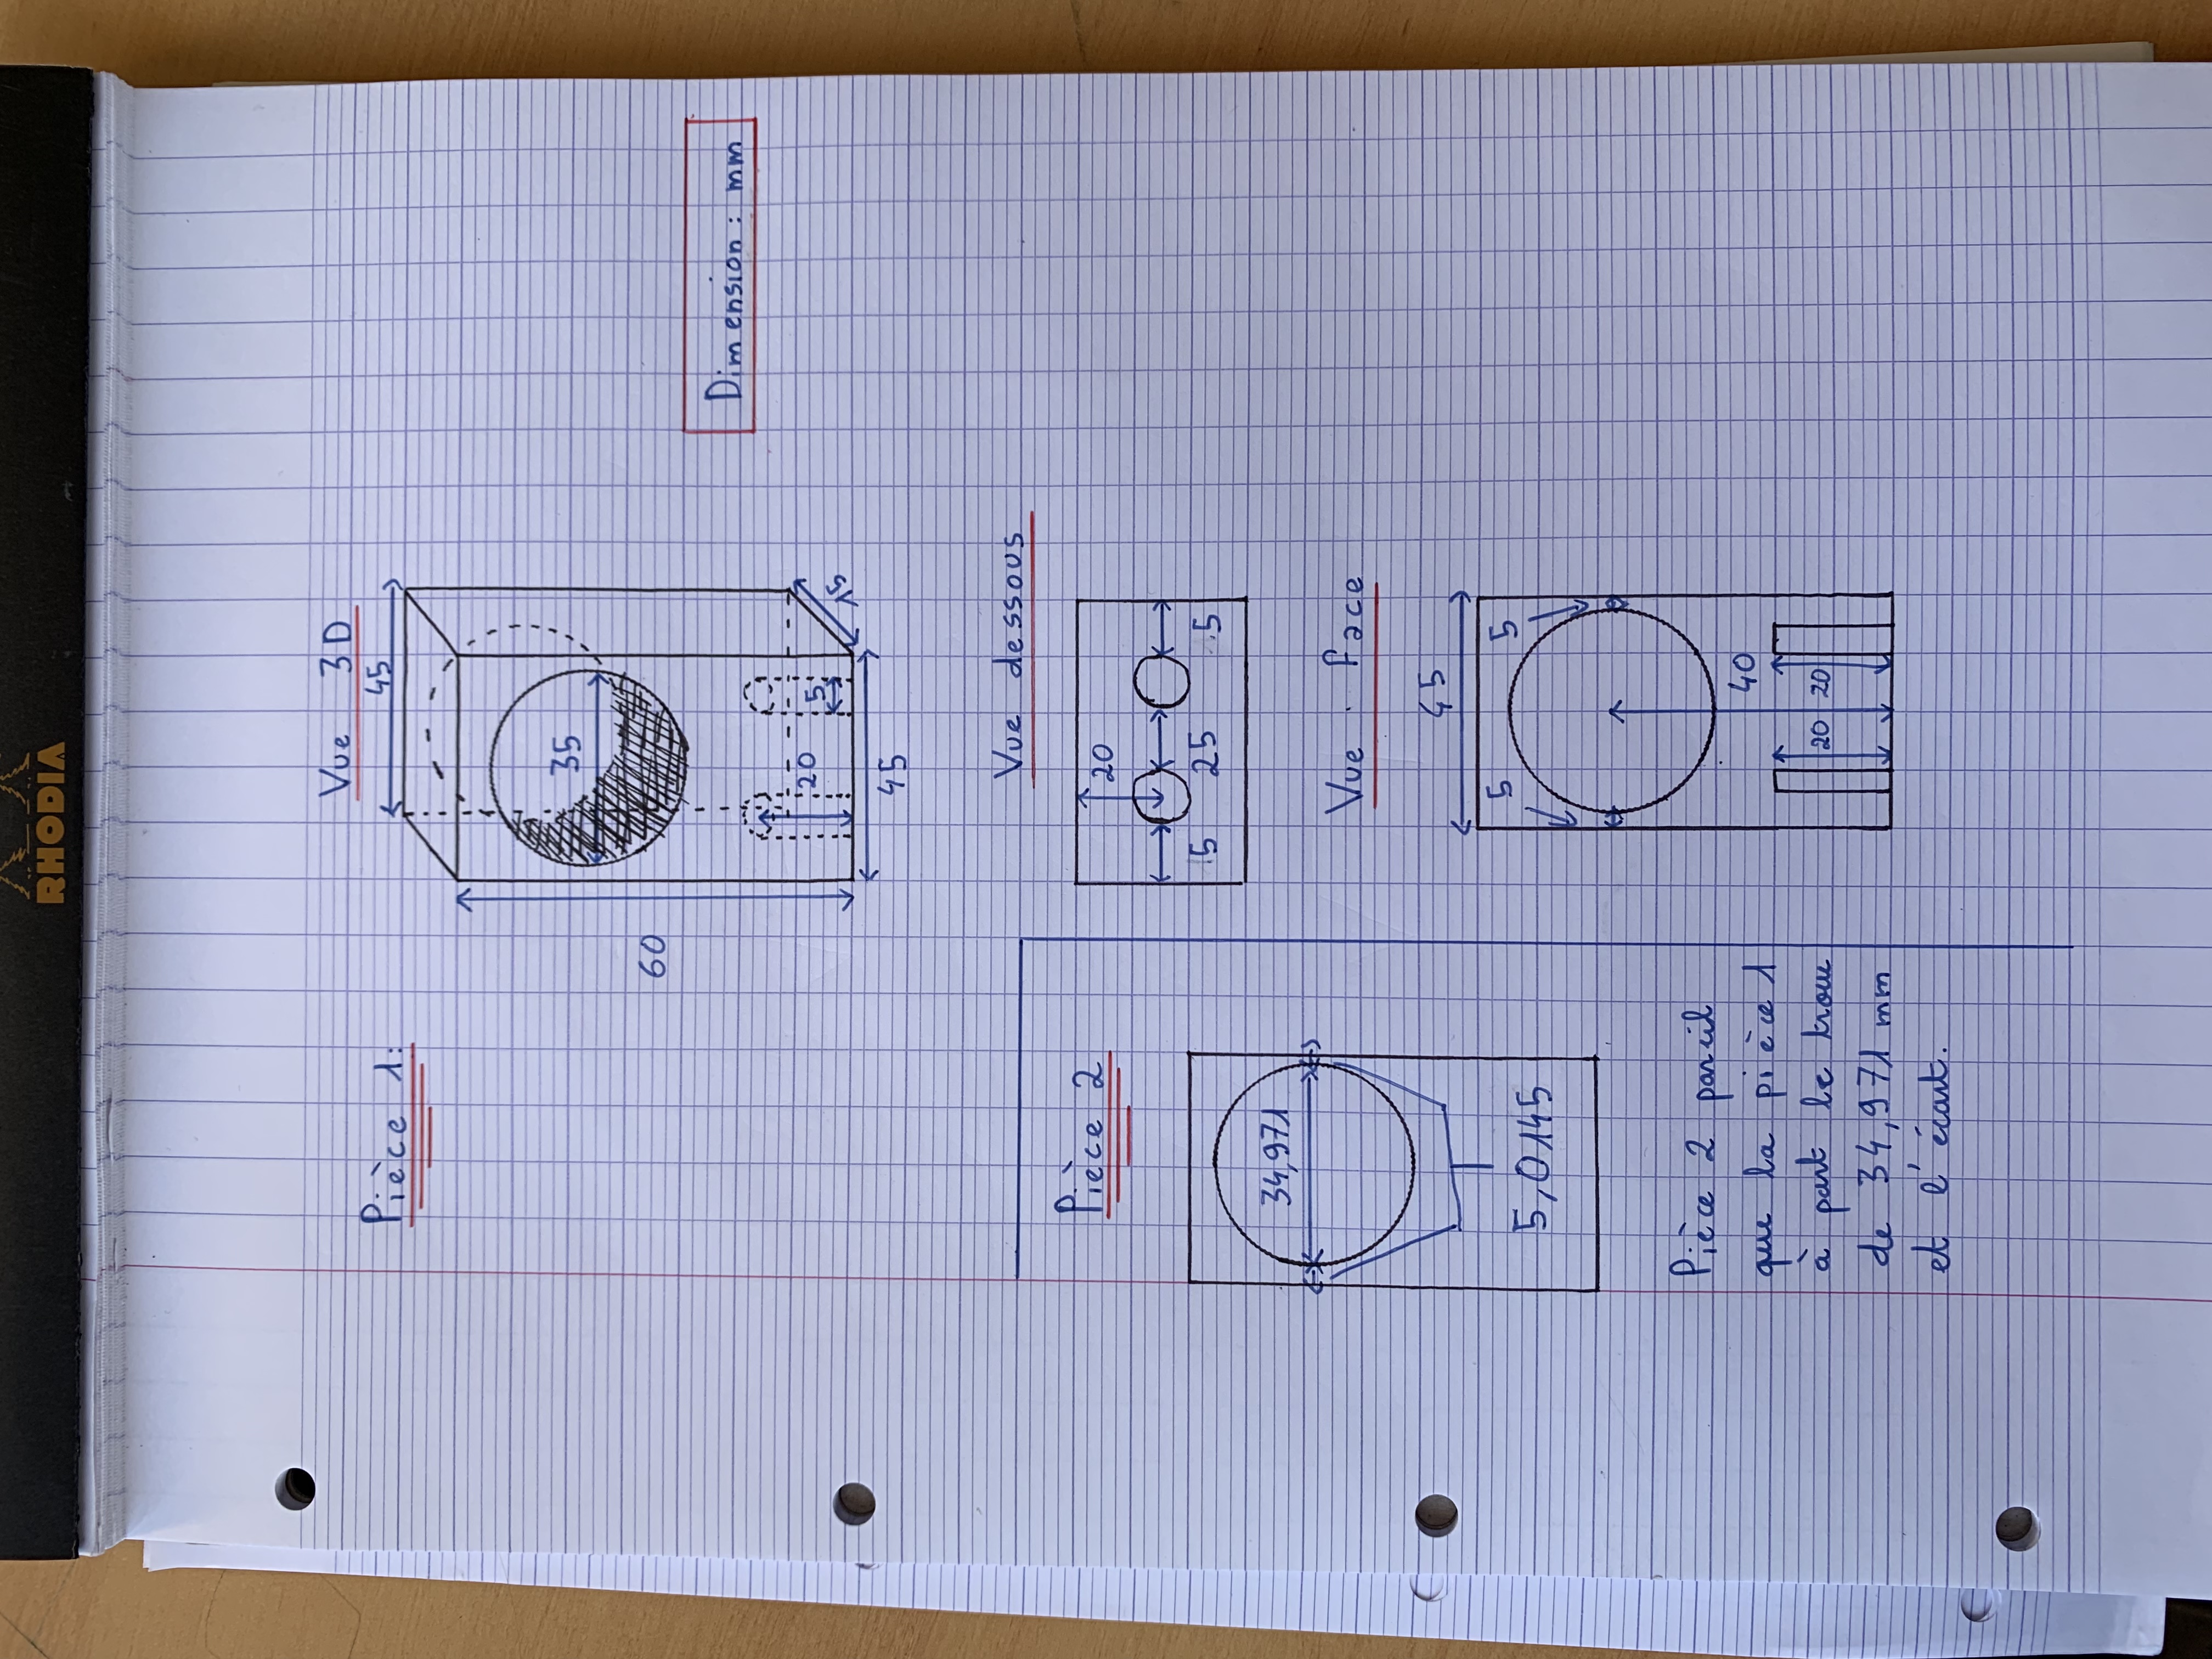 RHODIA
Pièce 1:
Vue 3D
45
35
60
20
5
45
Dimension : mm
Vue dessous
20
5
25
5
Vue face
45
5
5
40
20
20
Pièce 2
34,971
5,0145
Pièce 2 pareil
que la pièce 1
à part le trou
de 34,971 mm
et l'écart.